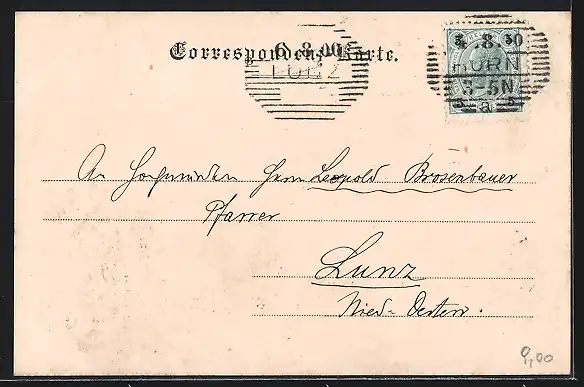 Correspondenz-Karte.
6.8.00
LUNZ
.8.
3-5N
5 5
An Hochwürden Herrn Leopold Brosenbauer
Pfarrer
Lunz
Nied-Österr.
9,00